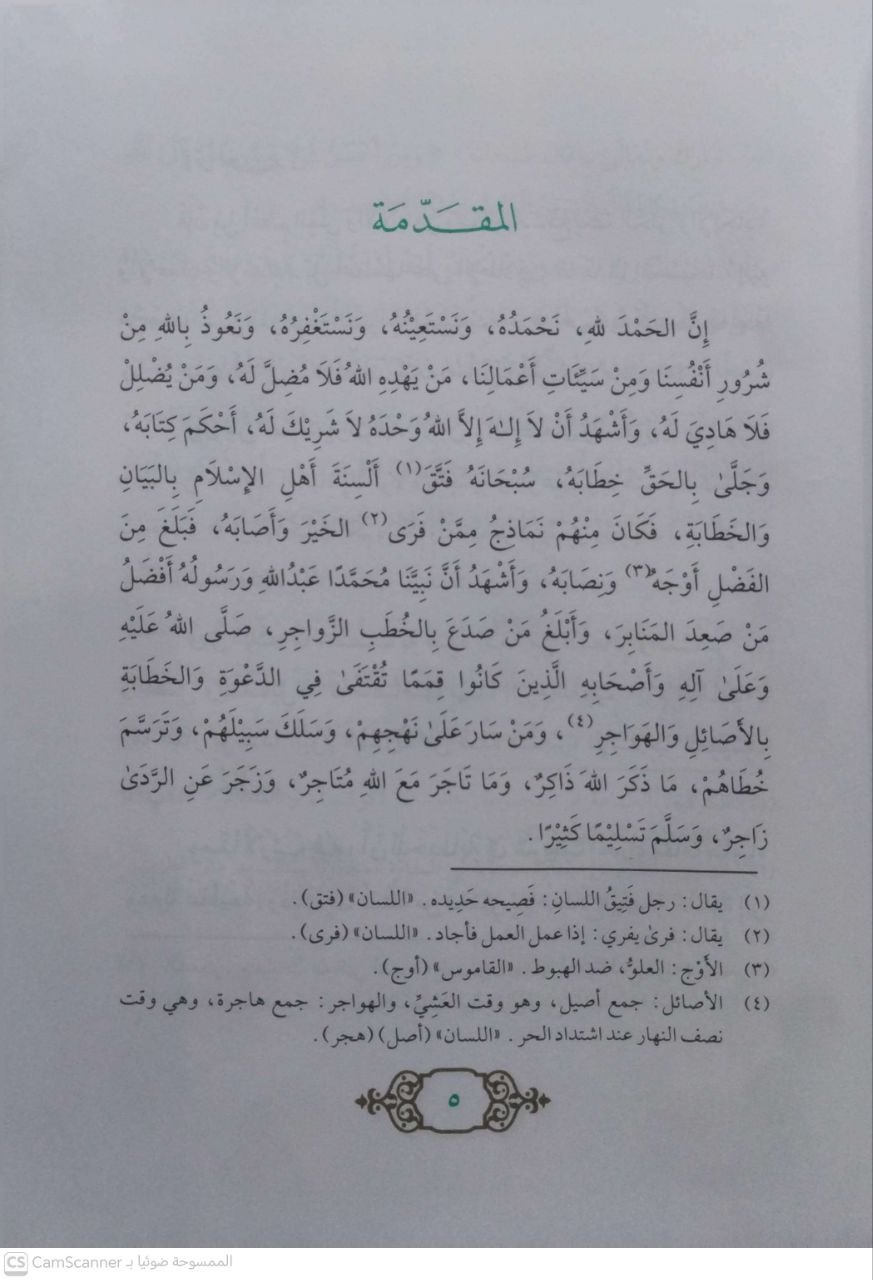 المقَدّمَة
إِنَّ الحَمْدَ للهِ، نَحْمَدُهُ، وَنَسْتَعِيْنُهُ، وَنَسْتَغْفِرُهُ، وَنَعُوذُ بِاللهِ مِنْ
شُرُورِ أَنْفُسِنَا وَمِنْ سَيِّئَاتِ أَعْمَالِنَا، مَنْ يَهْدِهِ اللهُ فَلَا مُضِلَّ لَهُ، وَمَنْ يُضْلِلْ
فَلَا هَادِيَ لَهُ، وَأَشْهَدُ أَنْ لاَ إِلـٰهَ إِلاَّ اللهُ وَحْدَهُ لاَ شَرِيْكَ لَهُ، أَحْكَمَ كِتَابَهُ،
وَجَلَّىٰ بِالحَقِّ خِطَابَهُ، سُبْحَانَهُ فَتَّقَ(١) أَلْسِنَةَ أَهْلِ الإِسْلَامِ بِالبَيَانِ
وَالخَطَابَةِ، فَكَانَ مِنْهُمْ نَمَاذِجُ مِمَّنْ فَرَى(٢) الخَيْرَ وَأَصَابَهُ، فَبَلَغَ مِنَ
الفَضْلِ أَوْجَهُ(٣) وَنِصَابَهُ، وَأَشْهَدُ أَنَّ نَبِيَّنَا مُحَمَّدًا عَبْدُاللهِ وَرَسُولُهُ أَفْضَلُ
مَنْ صَعِدَ المَنَابِرَ، وَأَبْلَغُ مَنْ صَدَعَ بِالخُطَبِ الزَّواجِرِ، صَلَّى اللهُ عَلَيْهِ
وَعَلَىٰ آلِهِ وَأَصْحَابِهِ الَّذِينَ كَانُوا قِمَمًا تُقْتَفَىٰ فِي الدَّعْوَةِ وَالخَطَابَةِ
بِالأَصَائِلِ وَالهَوَاجِرِ(٤)، وَمَنْ سَارَ عَلَىٰ نَهْجِهِمْ، وَسَلَكَ سَبِيْلَهُمْ، وَتَرَسَّمَ
خُطَاهُمْ، مَا ذَكَرَ اللهَ ذَاكِرٌ، وَمَا تَاجَرَ مَعَ اللهِ مُتَاجِرٌ، وَزَجَرَ عَنِ الرَّدَىٰ
زَاجِرٌ، وَسَلَّمَ تَسْلِيْمًا كَثِيْرًا.
(١) يقال: رجل فَتِيقُ اللسانِ: فَصِيحه حَدِيده. «اللسان» (فتق).
(٢) يقال: فرىٰ يفري: إذا عمل العمل فأجاد. «اللسان» (فرى).
(٣) الأَوْج: العلوُّ، ضد الهبوط. «القاموس» (أوج).
(٤) الأصائل: جمع أصيل، وهو وقت العَشِيِّ، والهواجر: جمع هاجرة، وهي وقت
نصف النهار عند اشتداد الحر. «اللسان» (أصل) (هجر).
٥
CS CamScanner الممسوحة ضوئيا بـ